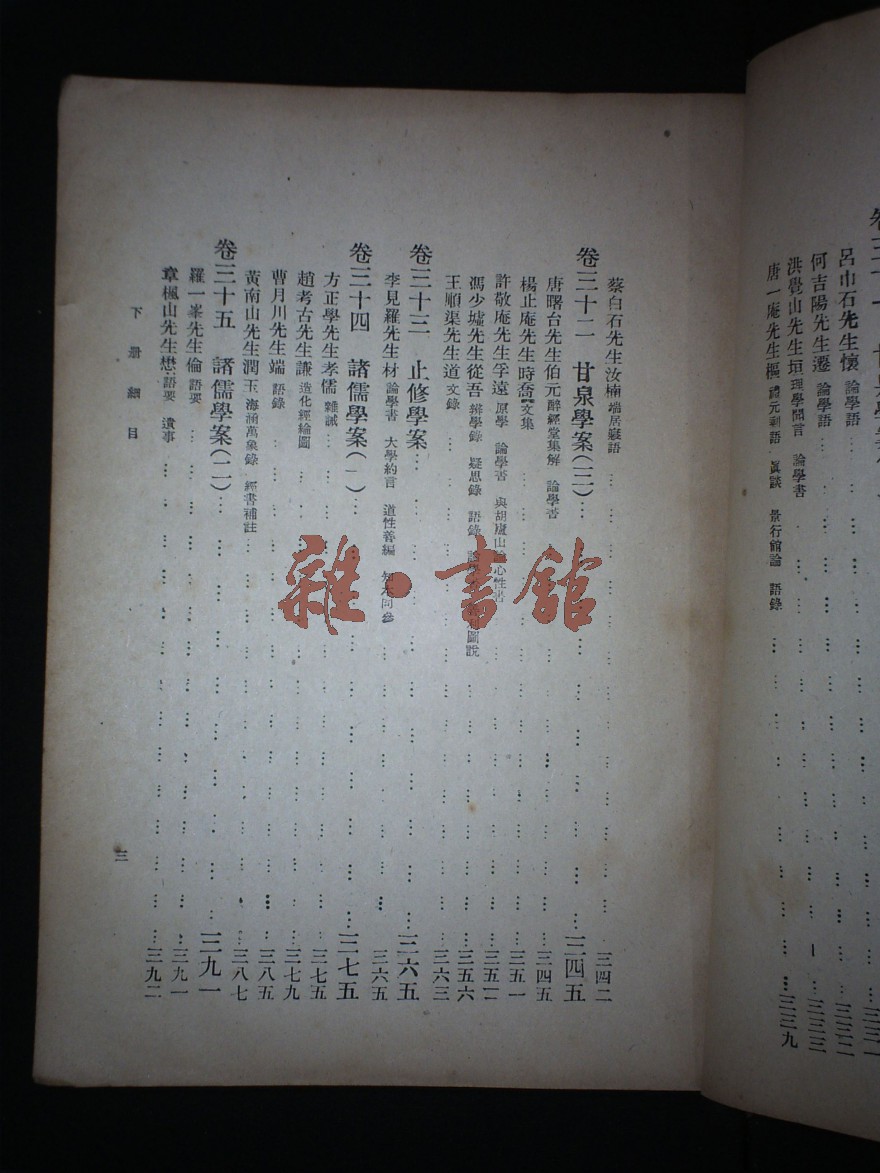 呂巾石先生懷 論學語 三三二
何吉陽先生遷 論學語 三三三
洪覺山先生垣 理學聞言 論學書
唐一庵先生樞 禮元剩語 眞談 景行館論 語錄 三三九
蔡白石先生汝楠 端居寱語 三四二
卷三十二 甘泉學案(三) 三四五
唐曙台先生伯元 醉經堂集解 論學書 三四五
楊止庵先生時喬 文集 三五一
許敬庵先生孚遠 原學 論學書 與胡廬山論心性書 三五二
馮少墟先生從吾 辨學錄 疑思錄 語錄 論學書 圖說 三五六
王順渠先生道 文錄 三六三
卷三十三 止修學案 三六五
李見羅先生材 論學書 大學約言 道性善編 知本同參 三六五
卷三十四 諸儒學案(一) 三七五
方正學先生孝儒 雜誡 三七五
趙考古先生謙 造化經綸圖 三七九
曹月川先生端 語錄 三八五
黃南山先生潤玉 海涵萬象錄 經書補註 三八七
卷三十五 諸儒學案(二) 三九一
羅一峯先生倫 語要 三九一
章楓山先生懋 語要 遺事 三九二
下册細目
三
雜·書館